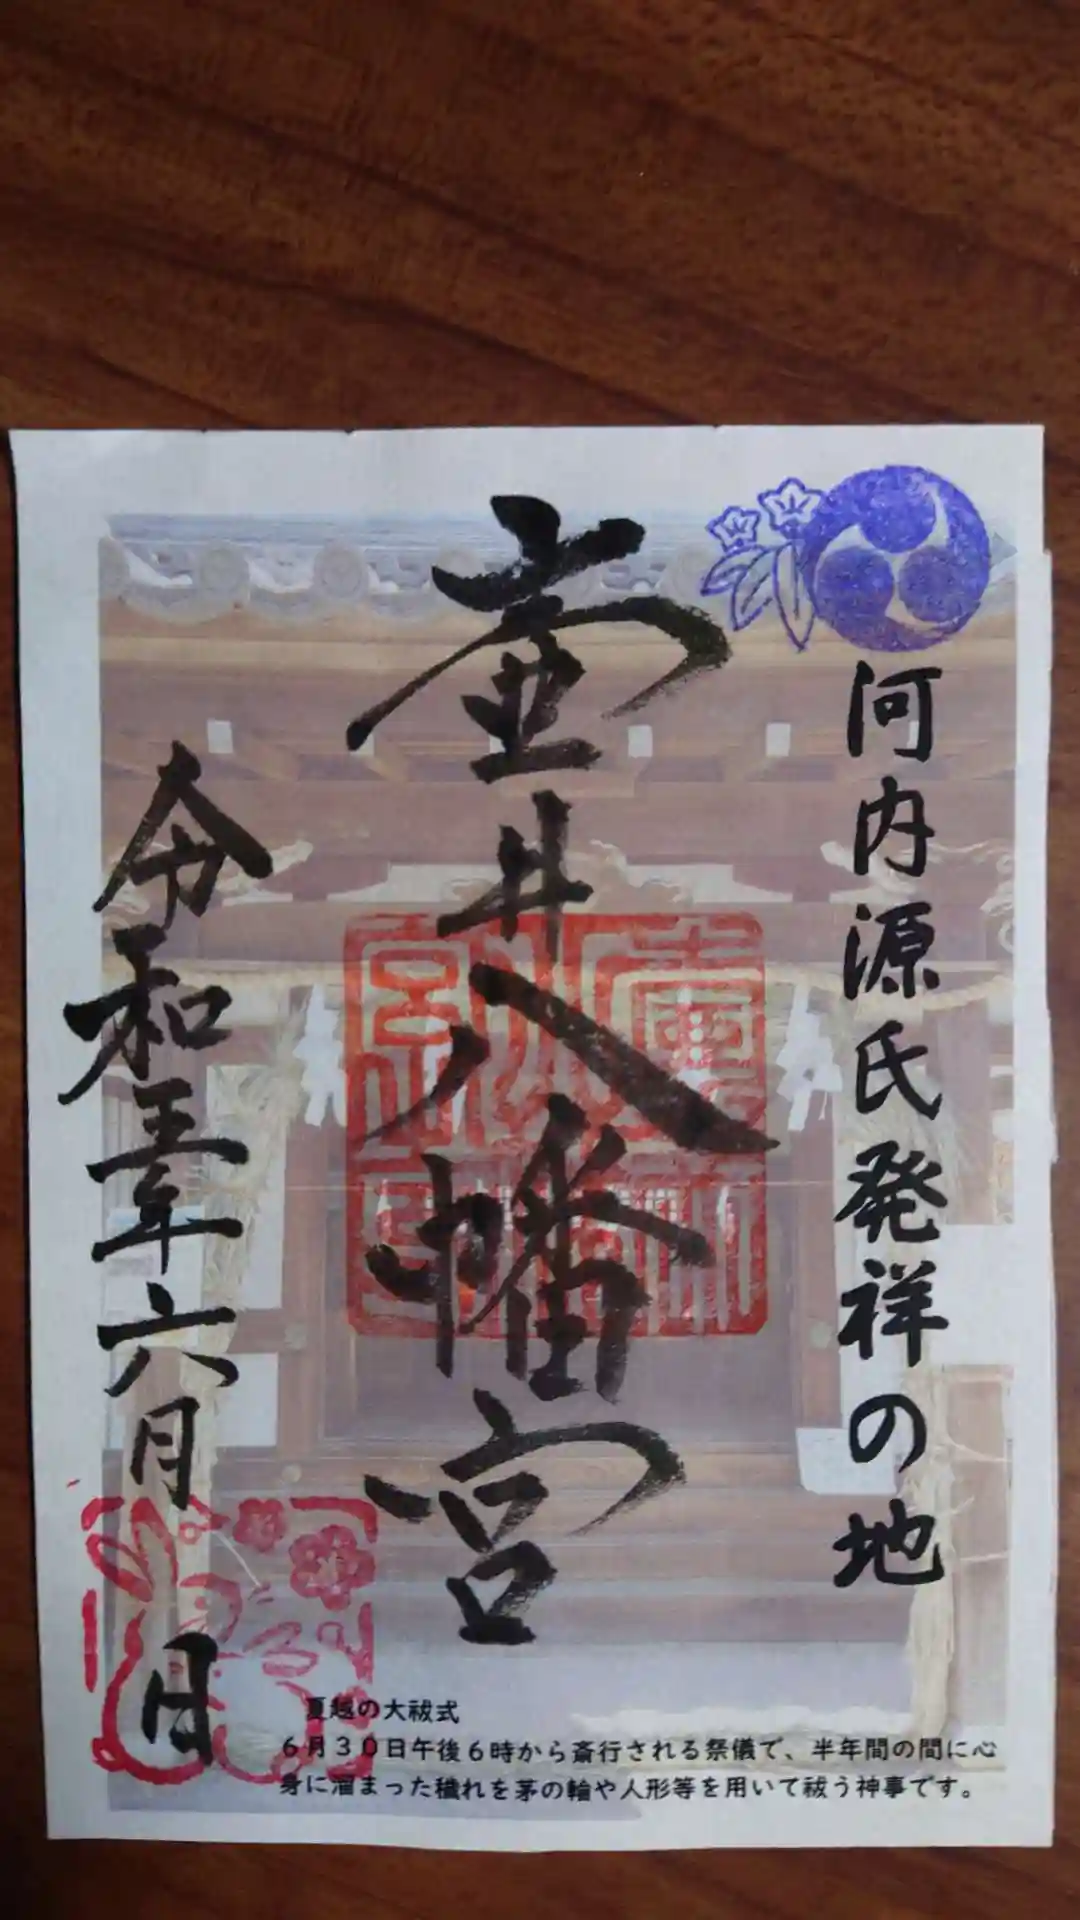 河内源氏発祥の地
壷井八幡宮
令和五年六月 日
夏越の大祓式
6月30日午後6時から斎行される祭儀で、半年間の間に心
身に溜まった穢れを茅の輪や人形等を用いて祓う神事です。